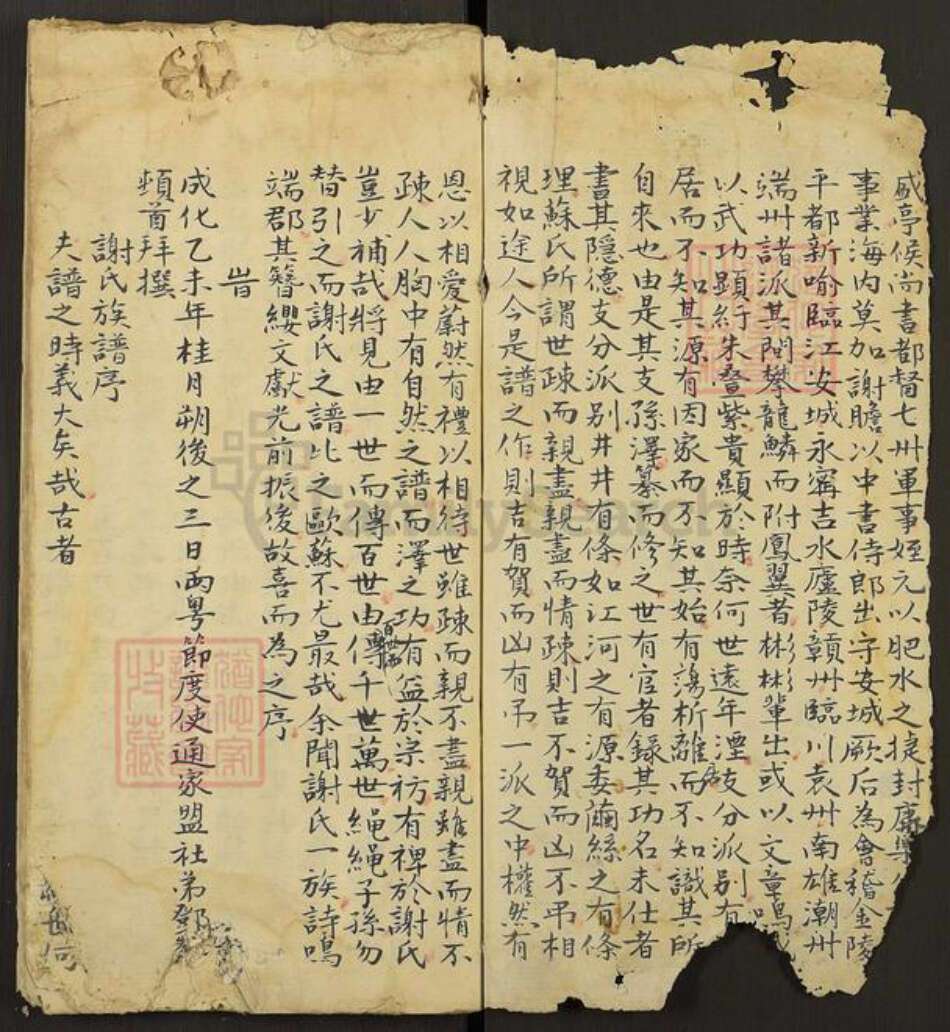 咸亭侯尚書都督七州軍事姪元以肥水之捷封康樂
事業海內莫加謝瞻以中書侍郎出守安城厥后為會稽金陵
平都新喻臨江安城永寗吉水廬陵贛州臨川袁州南雄潮州
端州諸派其間攀龍鱗而附鳳翼者彬彬輩出或以文章鳴或
以武功顯紆朱登紫貴顯於時奈何世遠年湮支分派別有
居而不知其源有因家而不知其始有蕩析離而不知識其所
自來也由是其支孫澤纂而修之世有官者錄其功名未仕者
書其隱德支分派別井井有條如江河之有源委繭絲之有條
理蘇氏所謂世疎而親盡親盡而情疎則吉不賀而凶不弔相
視如途人今是譜之作則吉有賀而凶有弔一派之中權然有
恩以相愛蔚然有禮以相待世雖疎而親不盡親雖盡而情不
疎人人胸中有自然之譜而澤之功有益於宗祊有裨於謝氏
豈少補哉將見由一世而傳百世由百世而傳千世萬世繩繩子孫勿
替引之而謝氏之譜比之歐蘇不尤最哉余聞謝氏一族詩鳴
端郡其簪纓文獻光前振後故喜而為之序
旹
成化乙未年桂月朔後之三日兩粤節度使通家盟社弟鄧
頓首拜撰
謝氏族譜序
夫譜之時義大矣哉古者
FamilySearch